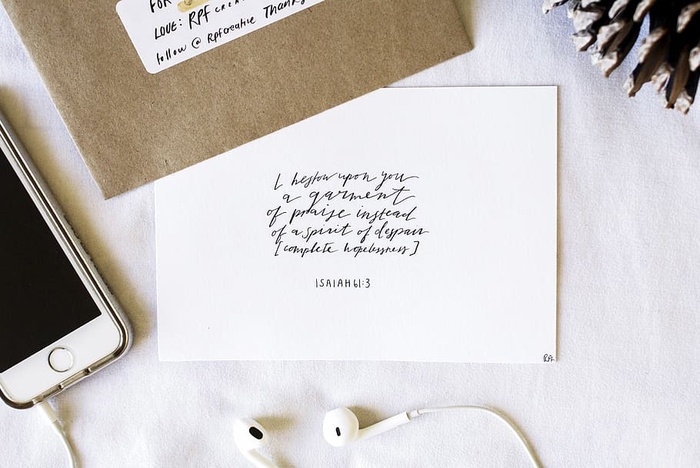 FOR
LOVE: RPF CREA
follow @ Rpfcreative Thanks
I bestow upon you
a garment
of praise instead
of a spirit of despair
[complete hopelessness]
ISAIAH 61:3